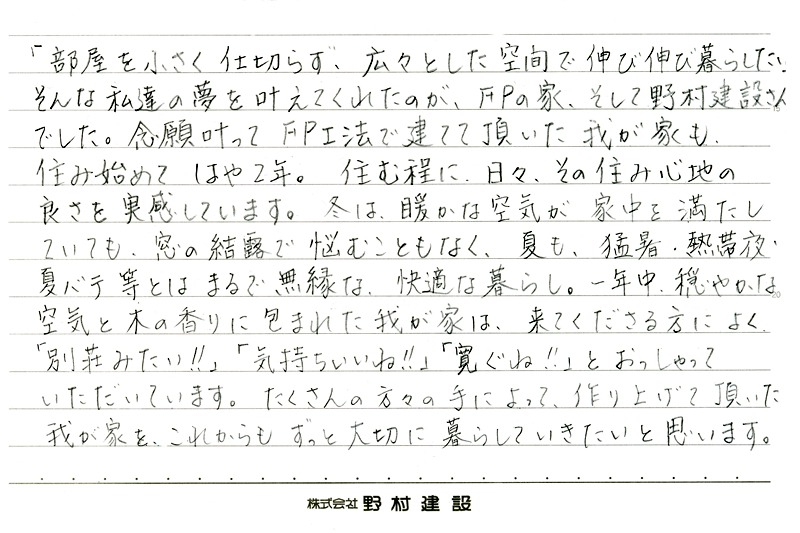 「部屋を小さく仕切らず、広々とした空間で伸び伸び暮らしたい
そんな私達の夢を叶えてくれたのが、FPの家、そして野村建設さん
でした。念願叶ってFP工法で建てて頂いた我が家も、
住み始めてはや2年。住む程に、日々、その住み心地の
良さを実感しています。冬は、暖かな空気が家中を満たし
ていても、窓の結露で悩むこともなく、夏も、猛暑・熱帯夜・
夏バテ等とはまるで無縁な、快適な暮らし。一年中、穏やかな
空気と木の香りに包まれた我が家は、来てくださる方によく、
「別荘みたい!!」「気持ちいいね!!」「寛ぐね!!」とおっしゃって
いただいています。たくさんの方々の手によって、作り上げて頂いた
我が家を、これからもずっと大切に暮らしていきたいと思います。
株式会社 野村建設